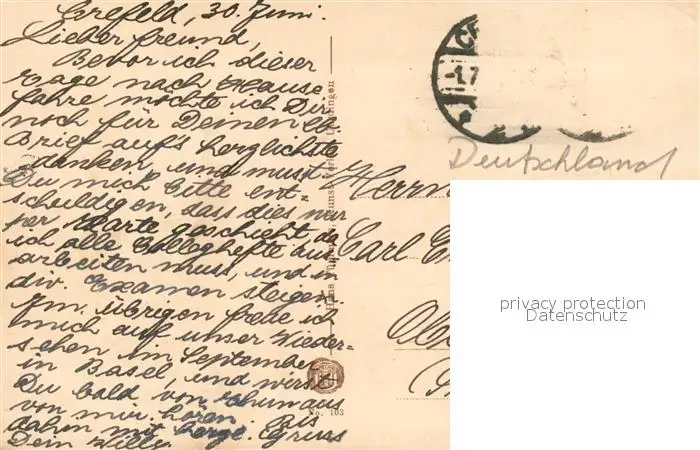 Crefeld, 30. Juni.
Lieber Freund,
Bevor ich dieser
Tage nach Hause
fahre möchte ich Dir
noch für Deinen lb.
Brief aufs herzlichste
danken, und musst
Du mich bitte ent
schuldigen, dass dies nur
per Karte geschieht da
ich alle Colleghefte aus
arbeiten muss, und in
div. Examen steigen.
Im übrigen freue ich
mich auf unser Wieder=
sehen im September
in Basel, und wirst
Du bald von
von mir hören. Bis
dahin mit herzl. Gruss
Dein Willy.
Hans
Kunst-Verlag
No. 103
C
-1.7
Deutschland
Herrn
Carl
privacy protection
Datenschutz